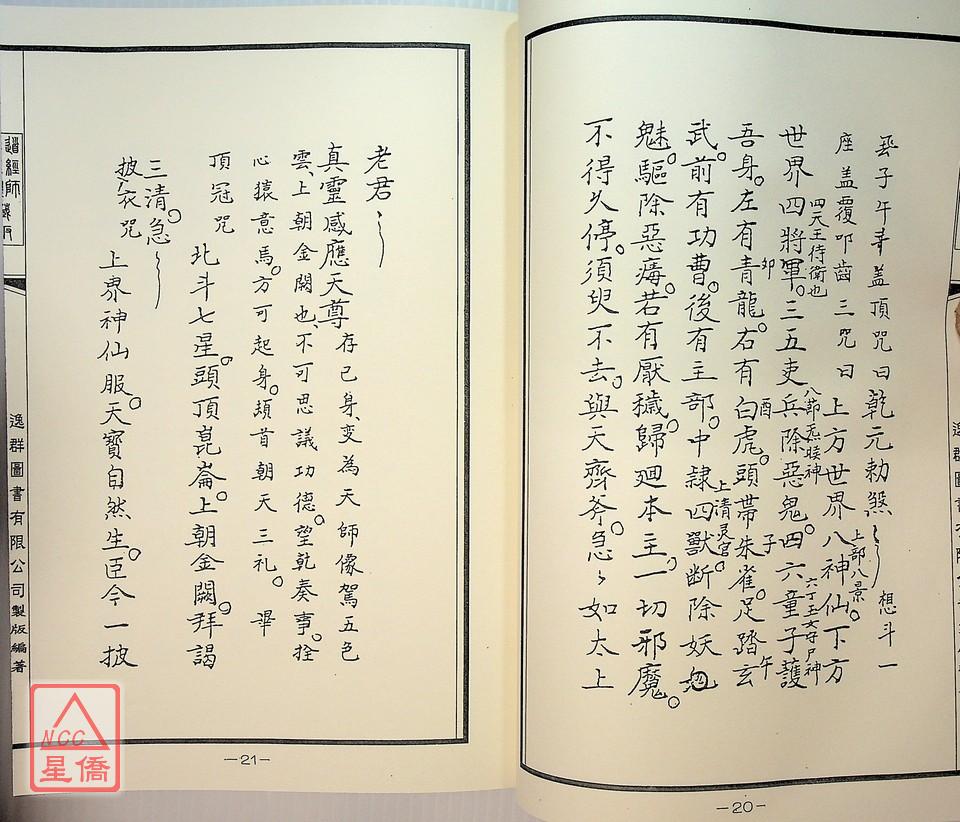 子午
盖頂咒曰乾元勅煞
想斗一
座盖覆叩齒三咒曰上方世界八神仙下方
上部八景
世界四將軍。三五吏兵除惡鬼。四六童子護
四天王侍衛也
六丁玉女守尸神
吾身。左有青龍。右有白虎。頭帶朱雀。足踏玄
卯
酉
子
午
武。前有功曹。後有主部。中隸四獸断除妖
上清灵官
魅。驅除惡毒。若有厭穢。歸廻本主。一切邪魔。
不得久停。須臾不去。與天齊斧。急〻如太上
-20-
老君
真靈感應天尊存己身变為天師像駕五色
雲、上朝金闕也、不可思議功德。望乾奏事。拴
心猿意馬。方可起身。頍首朝天三礼。畢
頂冠咒
北斗七星。頭頂崑崙。上朝金闕。拜謁
三清。急
披衣咒
上界神仙服。天寶自然生。臣今一披
-21-
逸群圖書有限公司製版編著
逸群圖書有限
NCC
星僑